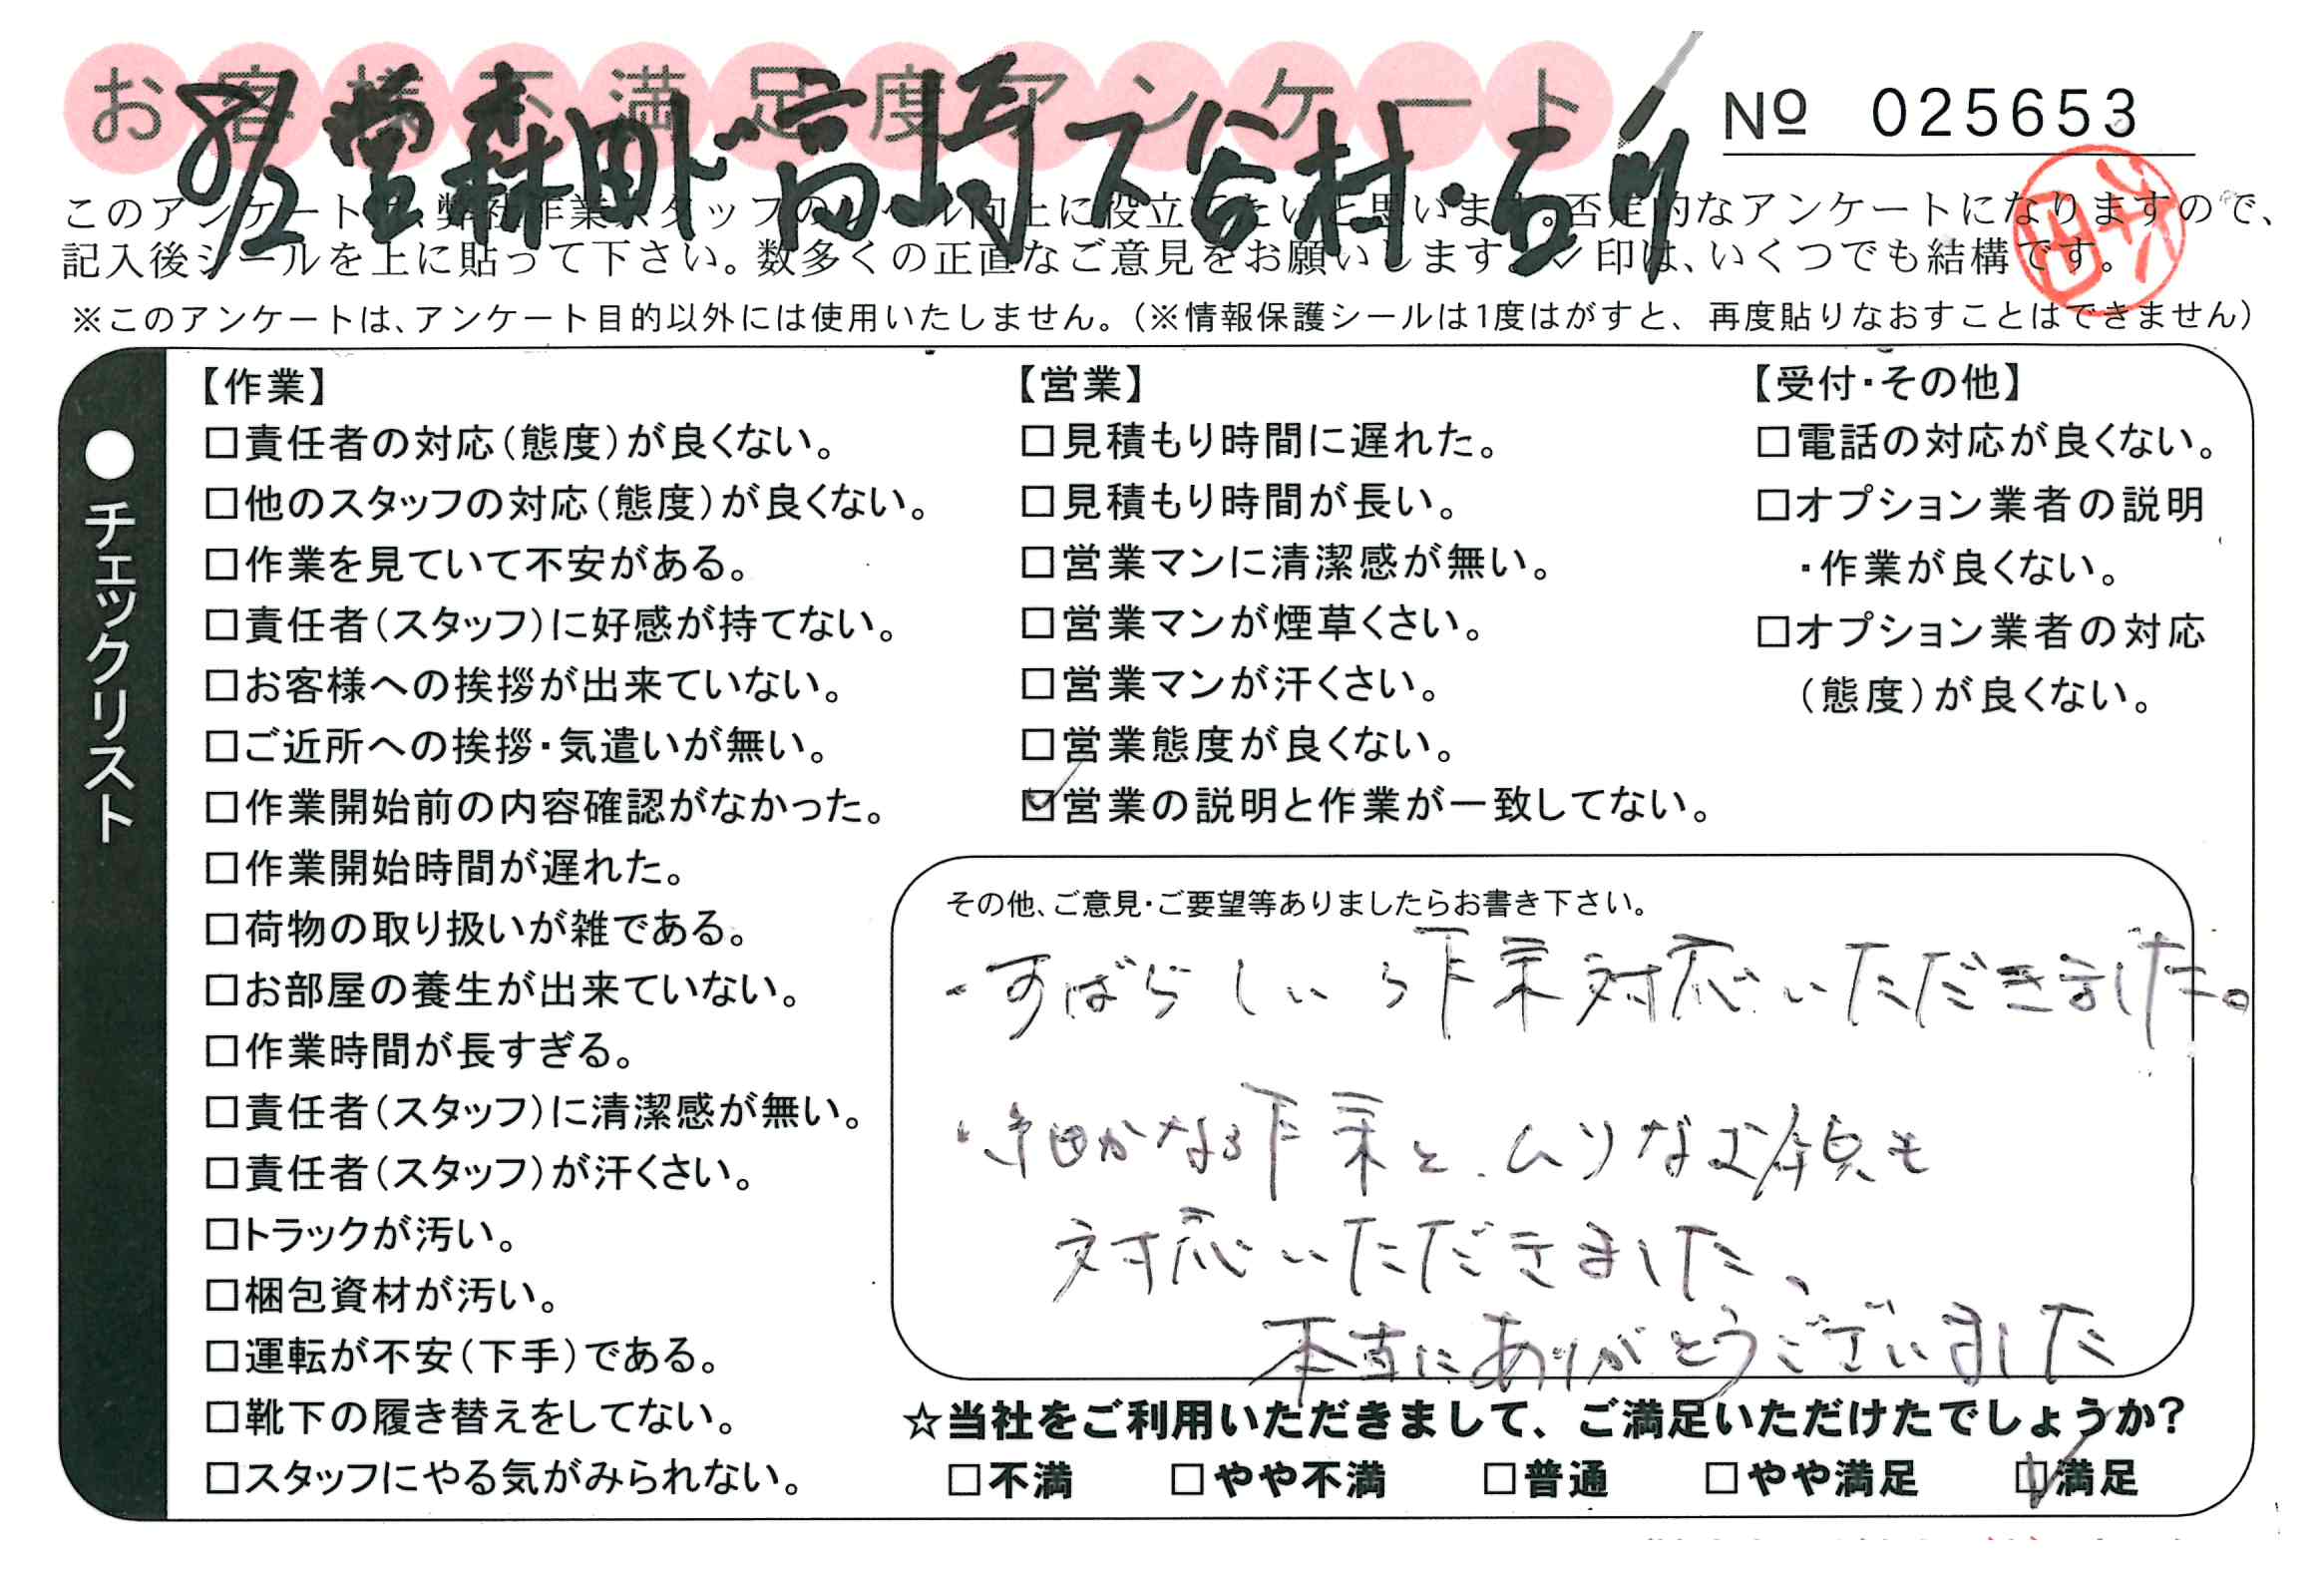 お客様不満足度アンケート
№ 025653
8/2 営森田ド高崎ス谷村・石川
このアンケートは、弊社作業スタッフのレベル向上に役立てたいと思います。否定的なアンケートになりますので、
記入後シールを上に貼って下さい。数多くの正直なご意見をお願いします。レ印は、いくつでも結構です。
※このアンケートは、アンケート目的以外には使用いたしません。(※情報保護シールは1度はがすと、再度貼りなおすことはできません)
●チェックリスト
【作業】
□責任者の対応(態度)が良くない。
□他のスタッフの対応(態度)が良くない。
□作業を見ていて不安がある。
□責任者(スタッフ)に好感が持てない。
□お客様への挨拶が出来ていない。
□ご近所への挨拶・気遣いが無い。
□作業開始前の内容確認がなかった。
□作業開始時間が遅れた。
□荷物の取り扱いが雑である。
□お部屋の養生が出来ていない。
□作業時間が長すぎる。
□責任者(スタッフ)に清潔感が無い。
□責任者(スタッフ)が汗くさい。
□トラックが汚い。
□梱包資材が汚い。
□運転が不安(下手)である。
□靴下の履き替えをしてない。
□スタッフにやる気がみられない。
【営業】
□見積もり時間に遅れた。
□見積もり時間が長い。
□営業マンに清潔感が無い。
□営業マンが煙草くさい。
□営業マンが汗くさい。
□営業態度が良くない。
☑営業の説明と作業が一致してない。
【受付・その他】
□電話の対応が良くない。
□オプション業者の説明
・作業が良くない。
□オプション業者の対応
(態度)が良くない。
その他、ご意見・ご要望等ありましたらお書き下さい。
・すばらしい作業対応いただきました。
・細かな作業と、ムリなお願も
対応いただきました、
本当にありがとうございました
☆当社をご利用いただきまして、ご満足いただけたでしょうか?
□不満 □やや不満 □普通 □やや満足 ☑満足